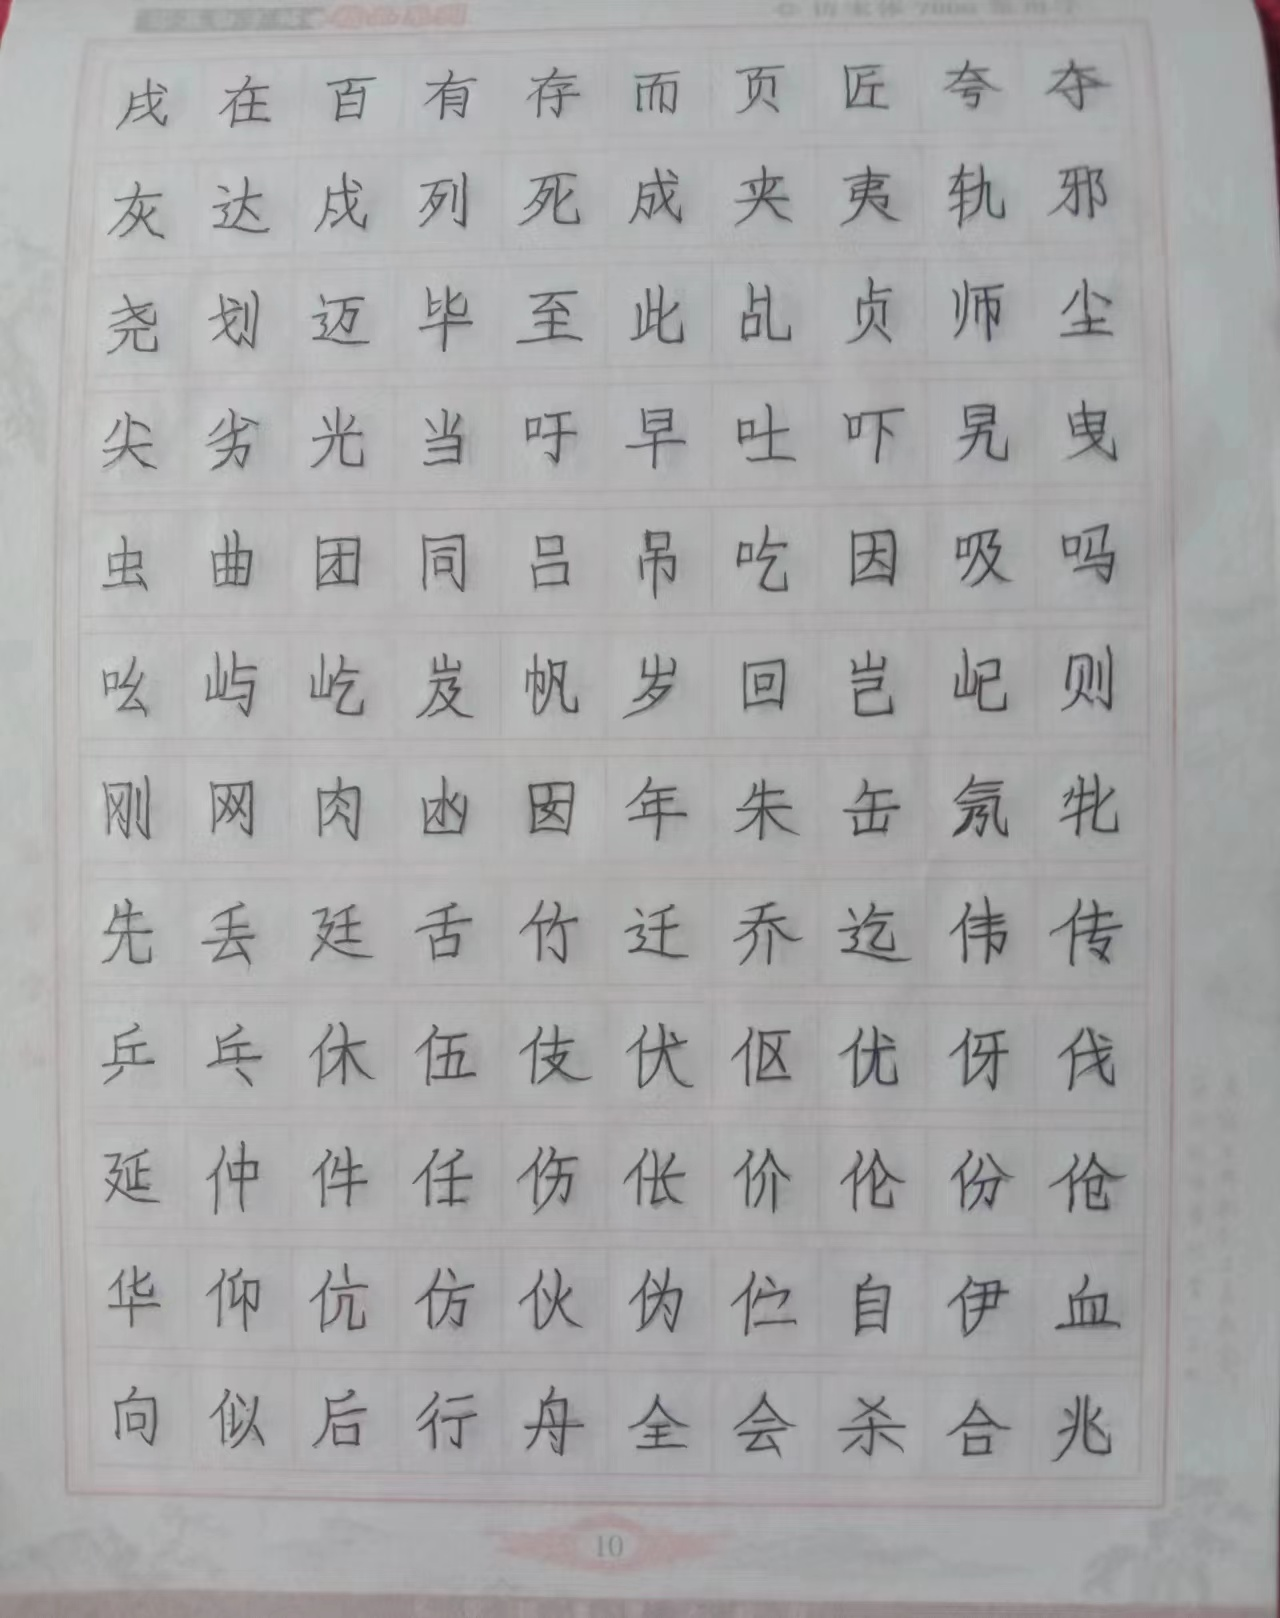 戌在百有存而页匠夸夺
灰达戍列死成夹夷轨邪
尧划迈毕至此乩贞师尘
尖劣光当吁早吐吓旯曳
虫曲团同吕吊吃因吸吗
吆屿屹岌帆岁回岂屺则
刚网肉凼囡年朱缶氖牝
先丢廷舌竹迁乔迄伟传
乒乓休伍伎伏伛优伢伐
延仲件任伤伥价伦份伧
华仰伉仿伙伪伫自伊血
向似后行舟全会杀合兆
10